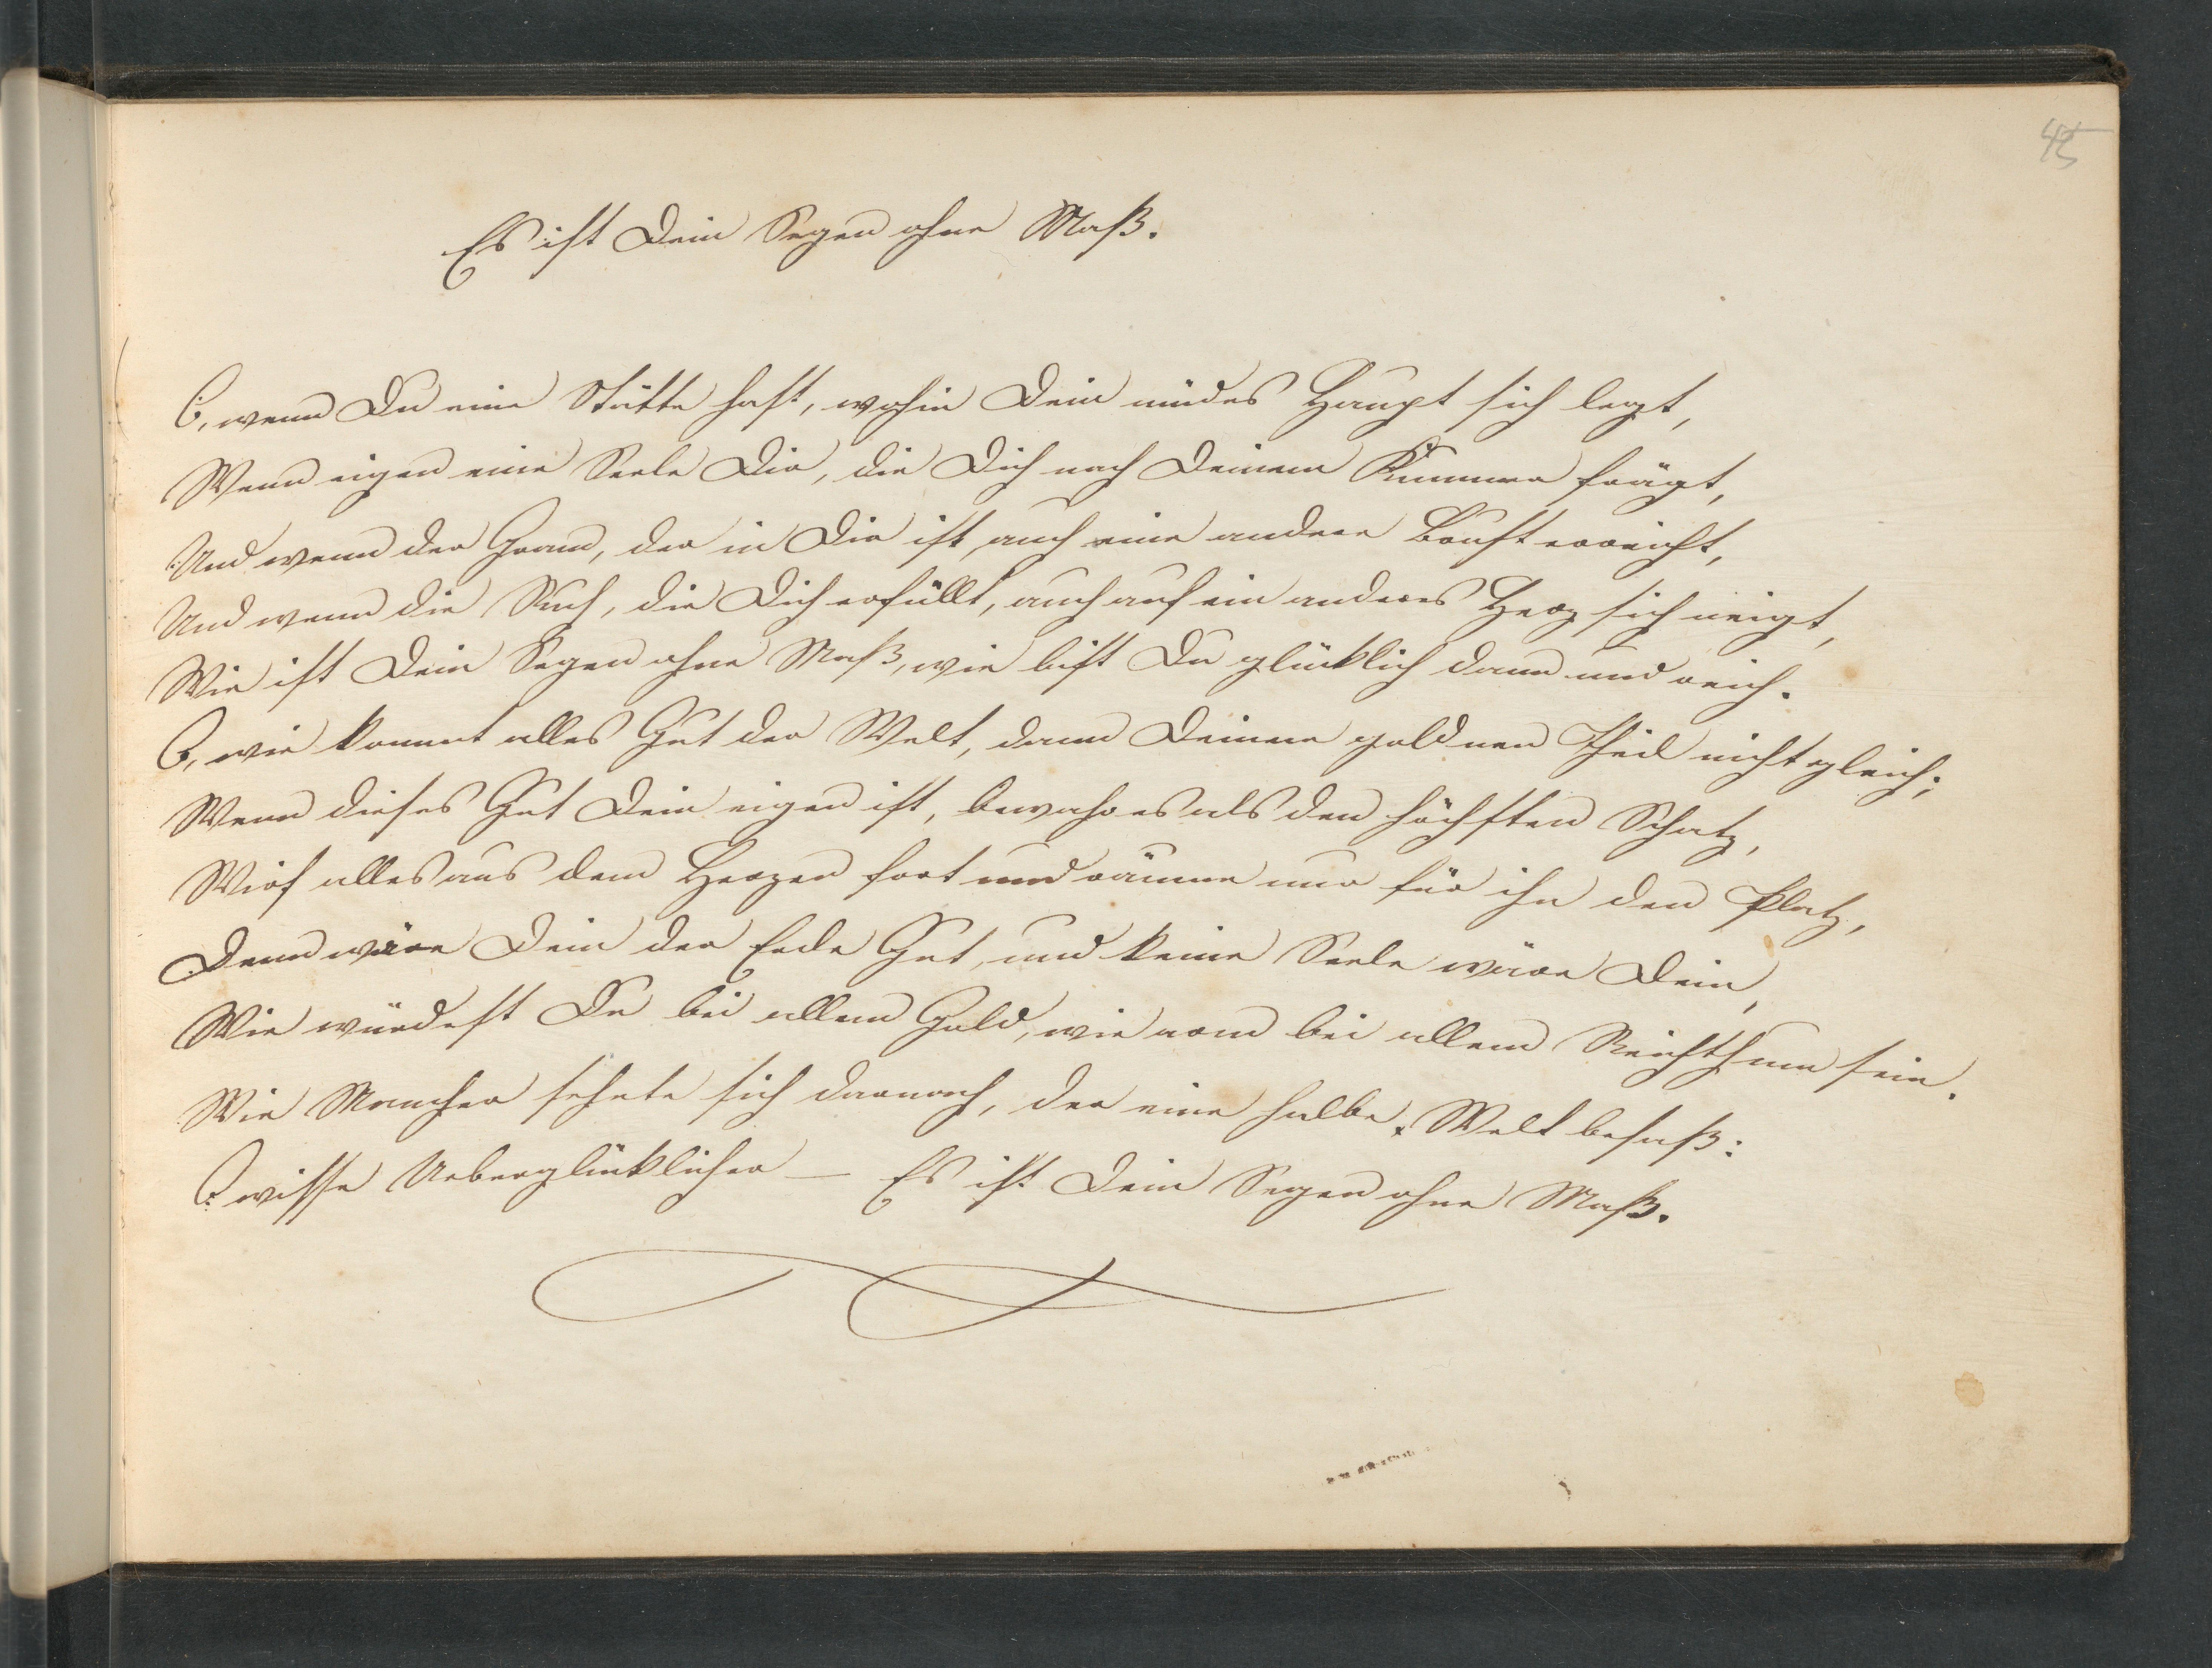 45
Es ist Dein Segen ohne Maß.
O, wenn Du eine Stätte hast, wohin Dein müdes Haupt sich legt,
Wenn eigen eine Seele Dir, die Dich nach Deinem Kummer frägt,
Und wenn der Gram, der in Dir ist, auch eine andere Brust erreicht,
Und wenn die Ruh, die Dich erfüllt, auch auf ein anderes Herz sich neigt,
Wie ist Dein Segen ohne Maß, wie bist Du glücklich dann und reich.
O, wie kommt alles Gut der Welt, dann Deinem goldnen Theil nicht gleich;
Wenn dieses Gut Dein eigen ist, bewahr es als den höchsten Schatz,
Wirf alles aus dem Herzen fort und räume nur für ihn den Platz,
Denn wäre Dein der Erde Gut, und keine Seele wäre Dein,
Wie würdest Du bei allem Gold, wie arm bei allem Reichthum sein.
Wie Mancher sehnte sich darnach, der eine halbe Welt besaß:
O wisse Ueberglücklicher — Es ist Dein Segen ohne Maß.